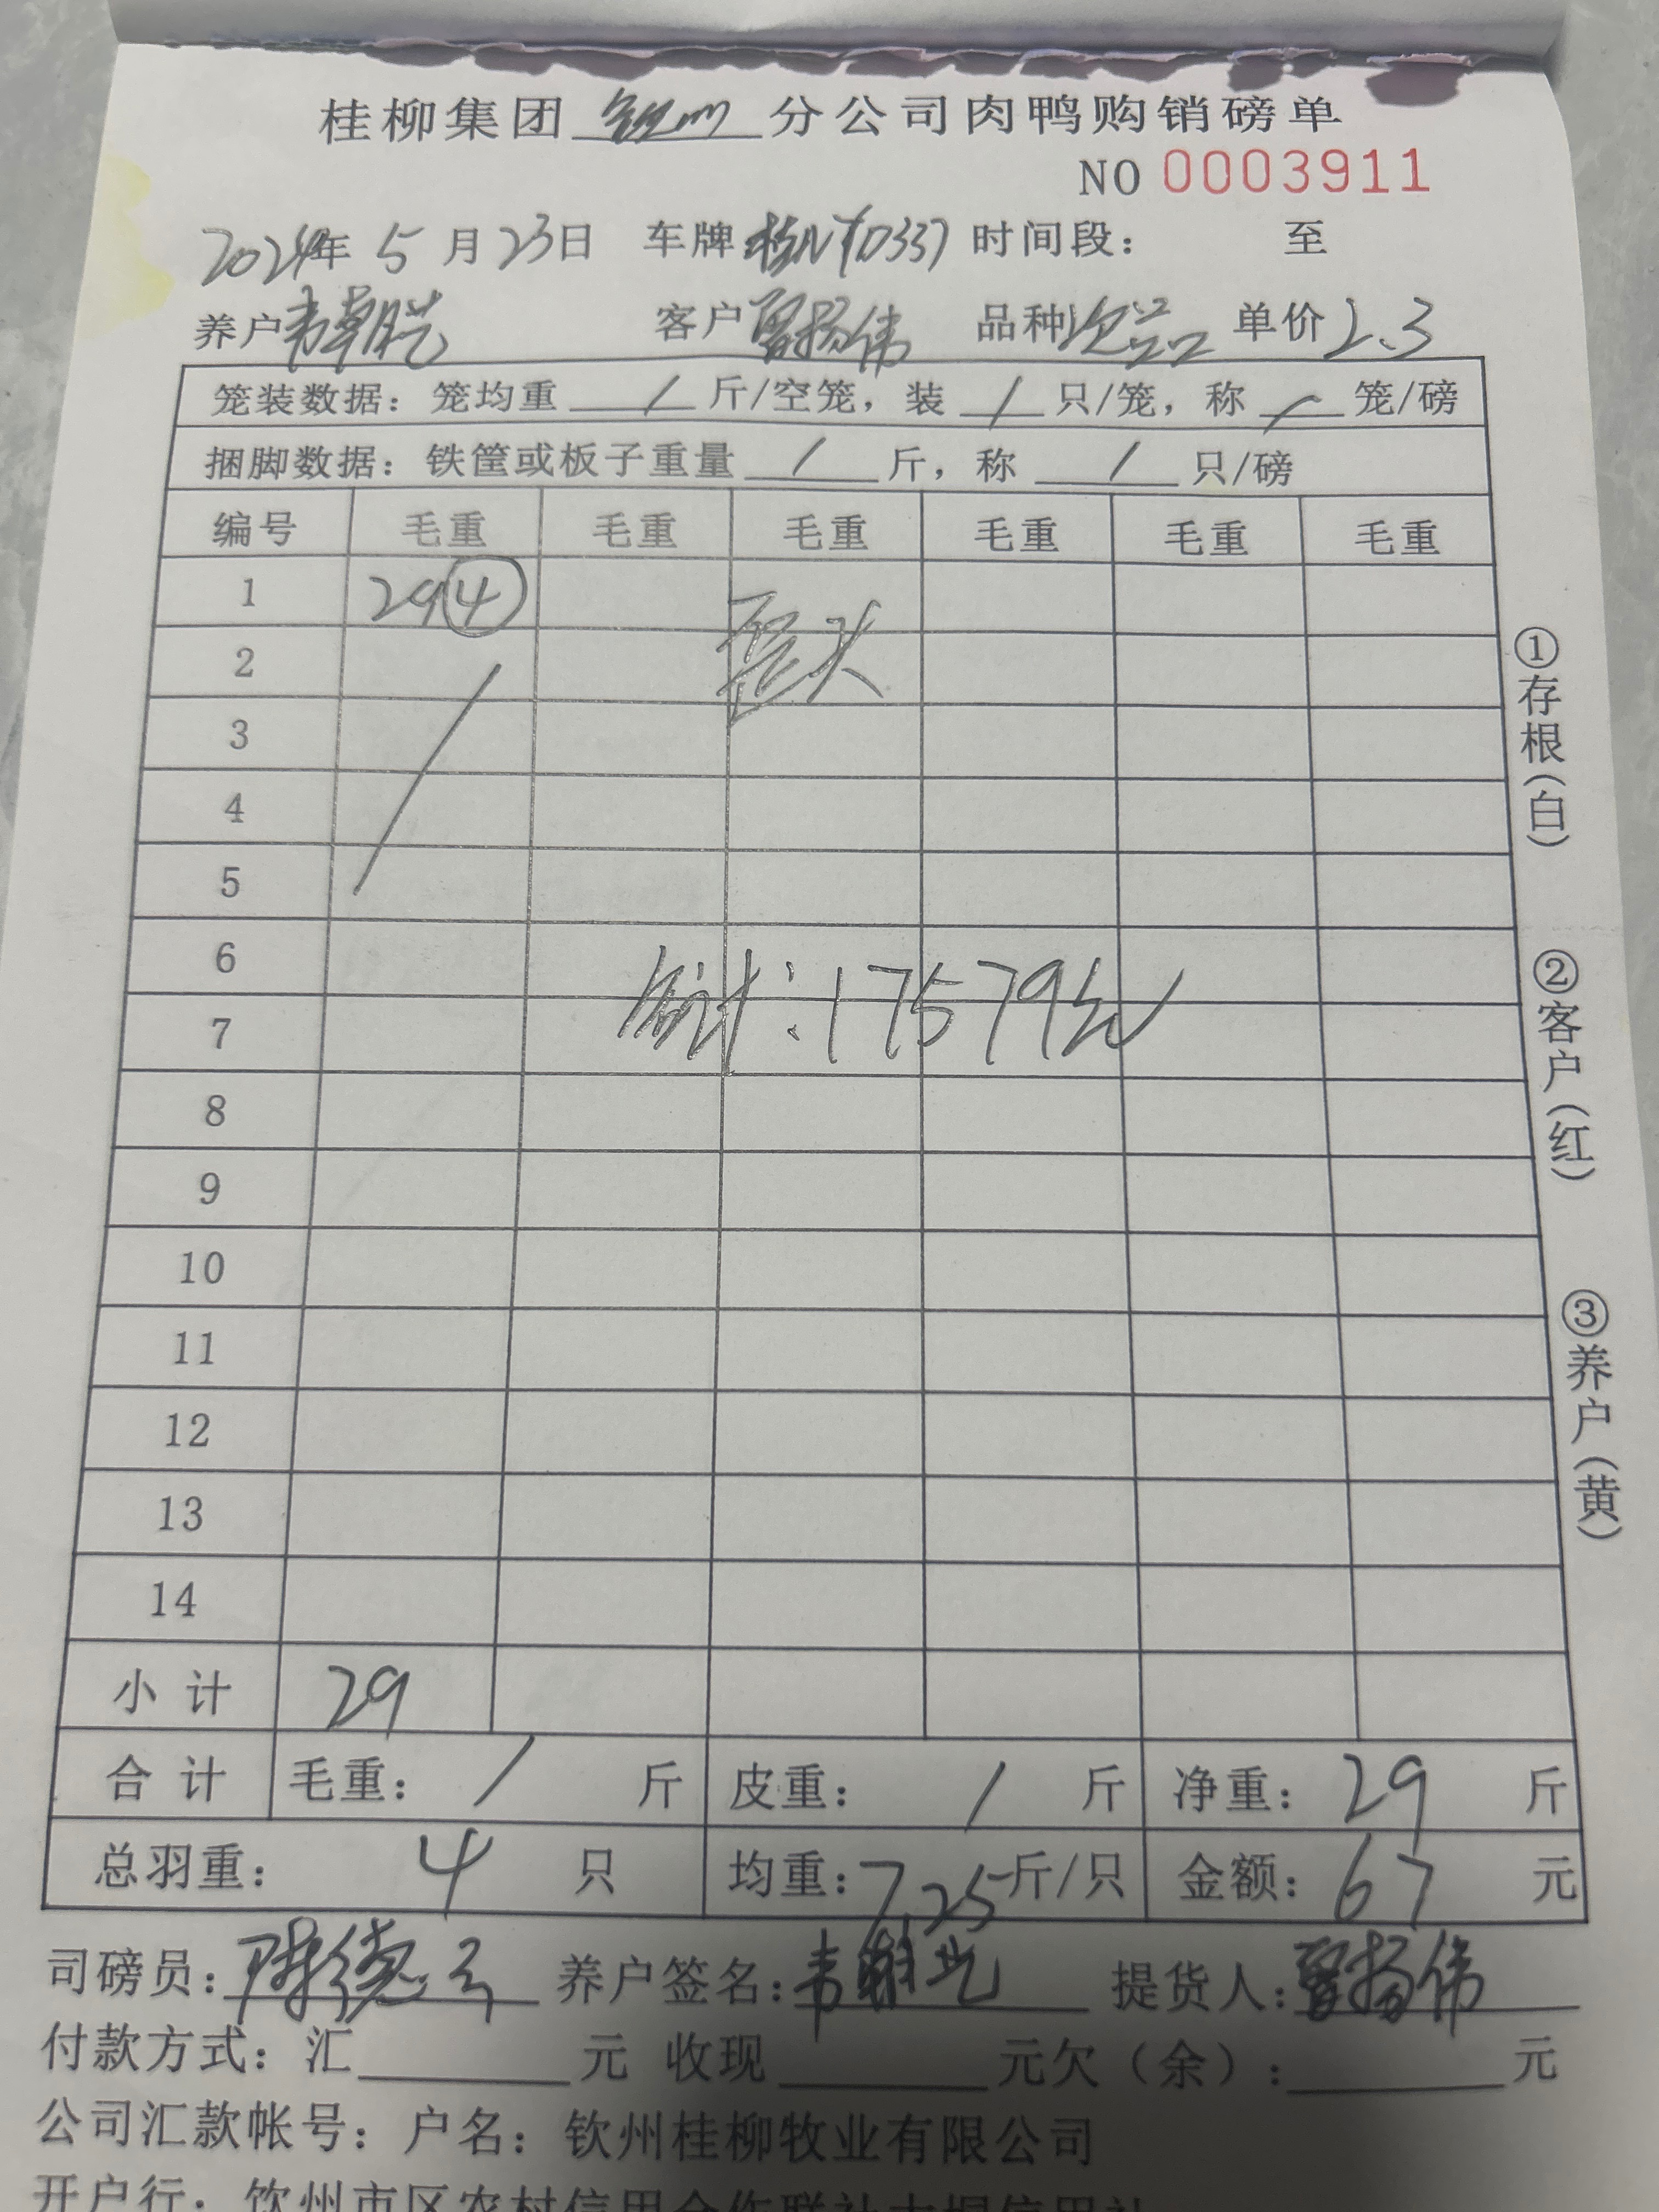 桂柳集团 钦州 分公司肉鸭购销磅单
NO 0003911
2024年 5 月 23日 车牌 时间段: 至
养户 韦 客户 扬伟 品种 次品 单价 2.3
笼装数据: 笼均重 / 斤/空笼, 装 / 只/笼, 称 / 笼/磅
捆脚数据: 铁筐或板子重量 / 斤, 称 / 只/磅
编号 毛重 毛重 毛重 毛重 毛重 毛重
1 29 ④
歪头
2
3
4
5
6
合计:17579元
7
8
9
10
11
12
13
14
小计 29
合计 毛重: / 斤 皮重: / 斤 净重: 29 斤
总羽重: 4 只 均重: 7.25 斤/只 金额: 67 元
司磅员: 陈德云 养户签名: 韦 提货人: 扬伟
付款方式: 汇 元 收现 元欠(余): 元
公司汇款帐号: 户名: 钦州桂柳牧业有限公司
开户行: 钦州市区农村信用合作联社大垌信用社
①存根(白)
②客户(红)
③养户(黄)